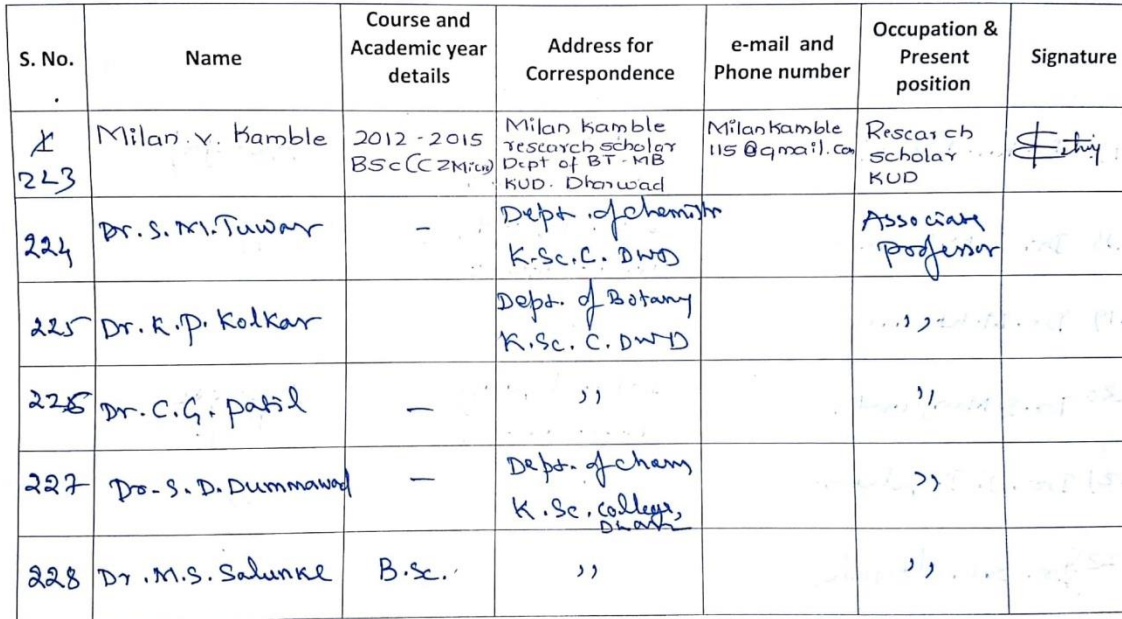 S. No.
Name
Course and
Academic year
details
Address for
Correspondence
e-mail and
Phone number
Occupation &
Present
position
Signature
223
Milan.v. Kamble
2012-2015
BSc(CZMicro)
Milan Kamble
research scholar
Dept of BT-MB
KUD. Dharwad
Milankamble
115@gmail.com
Research
scholar
KUD
224
Dr. S. M. Tuwar
-
Dept. of chemistr
K.Sc.C. DWD
Associate
professor
225
Dr. K. P. Kolkar
Dept. of Botany
K.Sc. C. DWD
,,
226
Dr. C. G. patil
-
,,
,,
227
Dr. S. D. Dummawad
-
Dept. of Chem
K.Sc. college,
,,
228
Dr. M.S. Salunke
B.Sc.
,,
,,